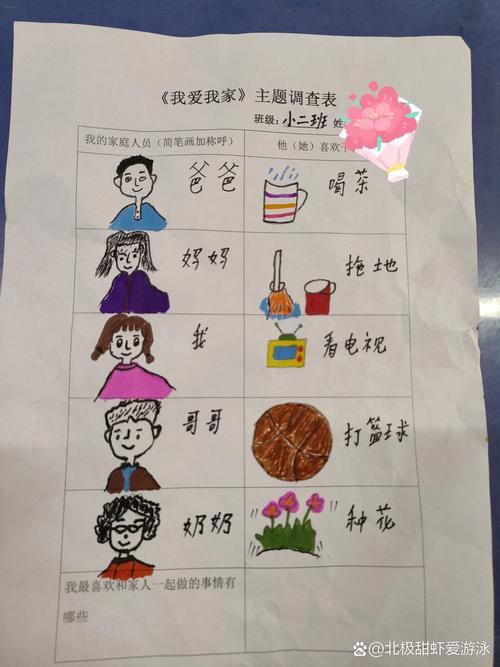 《我爱我家》主题调查表
班级：小二班 姓
我的家庭人员（简笔画加称呼）
他（她）喜欢
爸爸
喝茶
妈妈
拖地
我
看电视
哥哥
打篮球
奶奶
种花
我最喜欢和家人一起做的事情有
哪些
@北极甜虾爱游泳